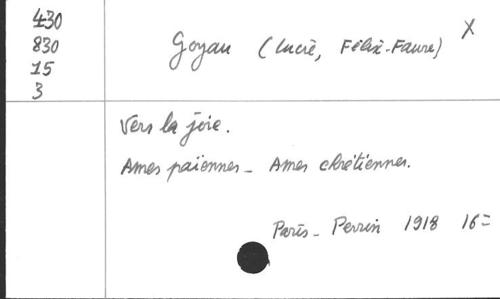 430
830
15
3
Goyau (Lucie, Félix-Faure) X
Vers la joie.
Ames païennes - Ames chrétiennes.
Paris - Perrin 1918 16=